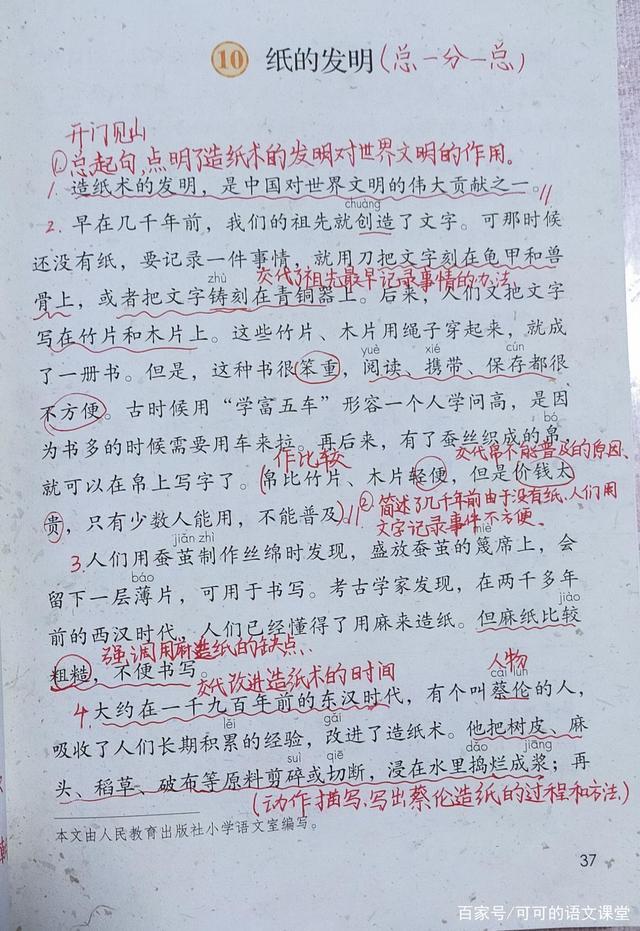 10 纸的发明(总-分-总)
开门见山
①总起句,点明了造纸术的发明对世界文明的作用。
1. 造纸术的发明,是中国对世界文明的伟大贡献之一。
chuàng
2. 早在几千年前,我们的祖先就创造了文字。可那时候
还没有纸,要记录一件事情,就用刀把文字刻在龟甲和兽
zhù 交代了祖先最早记录事情的办法
骨上,或者把文字铸刻在青铜器上。后来,人们又把文字
写在竹片和木片上。这些竹片、木片用绳子穿起来,就成
yuè xié cún
了一册书。但是,这种书很笨重,阅读、携带、保存都很
不方便。古时候用“学富五车”形容一个人学问高,是因
bó
为书多的时候需要用车来拉。再后来,有了蚕丝织成的帛,
作比较 交代帛不能普及的原因、
就可以在帛上写字了。(帛比竹片、木片轻便,但是价钱太
贵,只有少数人能用,不能普及)
②简述了几千年前由于没有纸、人们用
文字记录事件不方便、
jiǎn zhì miè
3. 人们用蚕茧制作丝绵时发现,盛放蚕茧的篾席上,会
báo
留下一层薄片,可用于书写。考古学家发现,在两千多年
jiào
前的西汉时代,人们已经懂得了用麻来造纸。但麻纸比较
强调用麻造纸的缺点、
粗糙,不便书写。
交代改进造纸术的日时间 人物
cài lún
4. 大约在一千九百年前的东汉时代,有个叫蔡伦的人,
lěi gǎi
吸收了人们长期积累的经验,改进了造纸术。他把树皮、麻
suì qiē dǎo jiāng
头、稻草、破布等原料剪碎或切断,浸在水里捣烂成浆;再
(动作描写、写出蔡伦造纸的过程和方法)
本文由人民教育出版社小学语文室编写。
37
百家号/可可的语文课堂